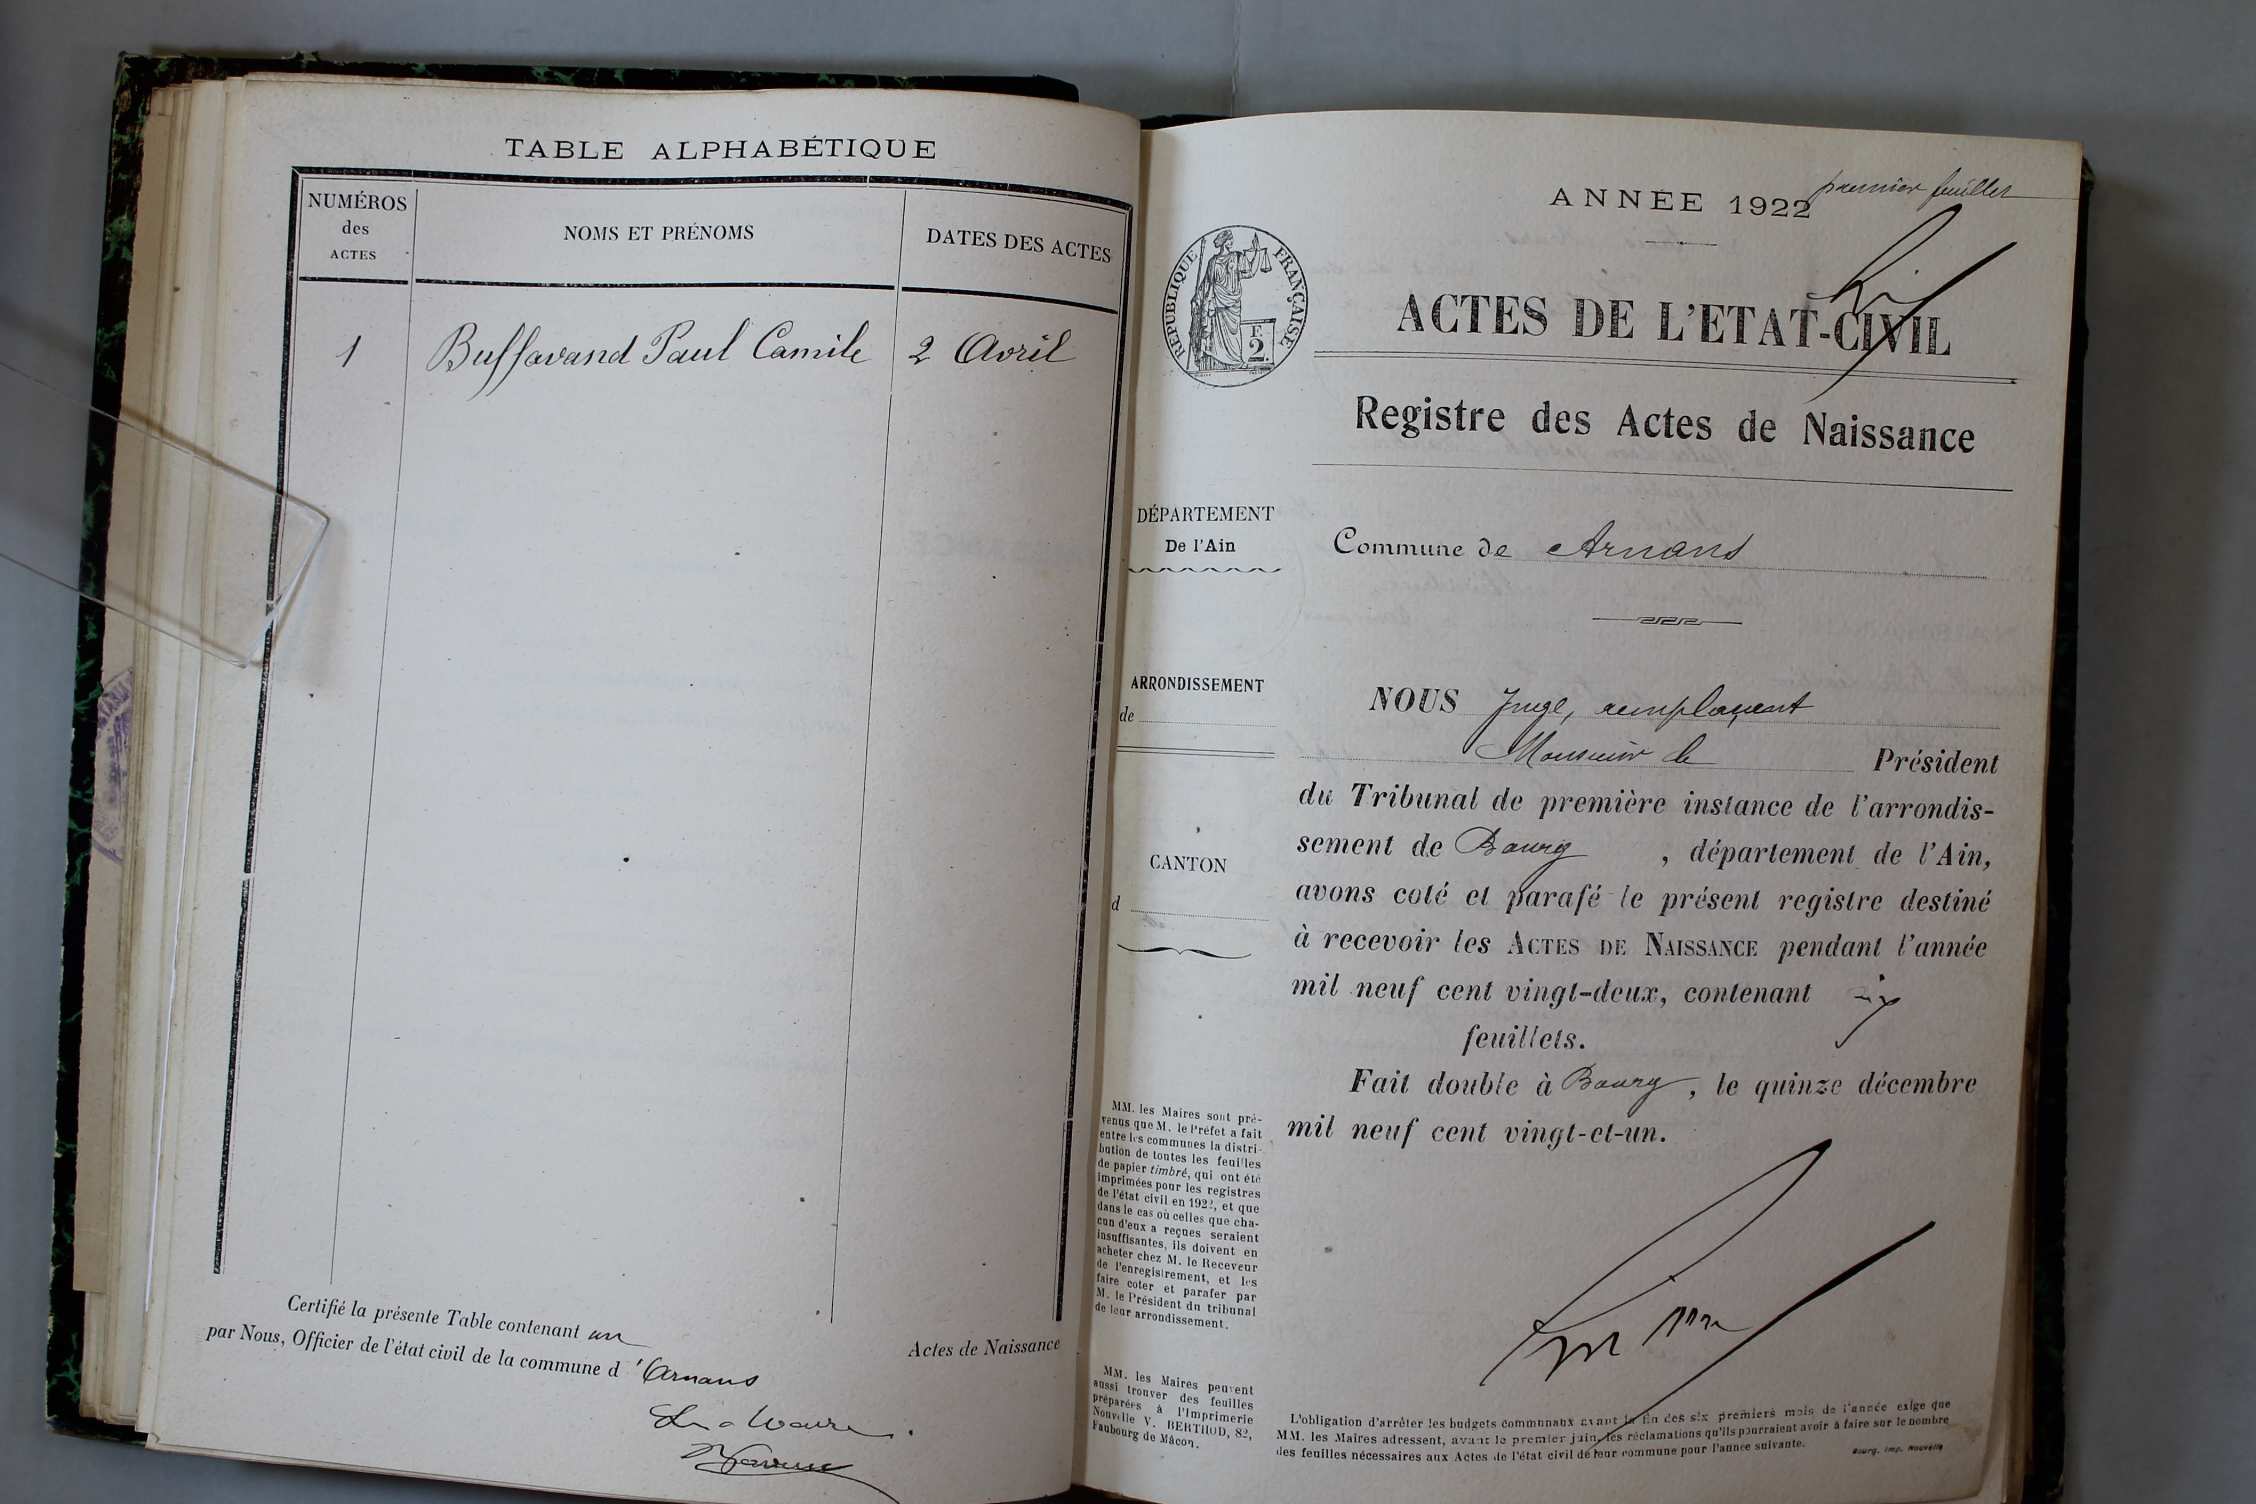 TABLE ALPHABÉTIQUE
NUMÉROS
des
ACTES
NOMS ET PRÉNOMS
DATES DES ACTES
1
Buffavand Paul Camile
2 Avril
Certifié la présente Table contenant un
Actes de Naissance
par Nous, Officier de l'état civil de la commune d'Arnans
premier feuillet
ANNÉE 1922
RÉPUBLIQUE FRANÇAISE
F.
2.
ACTES DE L'ETAT-CIVIL
Registre des Actes de Naissance
DÉPARTEMENT
De l'Ain
Commune de Arnans
ARRONDISSEMENT
de
CANTON
d
NOUS Juge, remplaçant
Monsieur le Président
du Tribunal de première instance de l'arrondis-
sement de Bourg, département de l'Ain,
avons coté et parafé le présent registre destiné
à recevoir les ACTES DE NAISSANCE pendant l'année
mil neuf cent vingt-deux, contenant six
feuillets.
Fait double à Bourg, le quinze décembre
mil neuf cent vingt-et-un.
MM. les Maires sont pré-
venus que M. le Préfet a fait
entre les communes la distri-
bution de toutes les feuilles
de papier timbré, qui ont été
imprimées pour les registres
de l'état civil en 1922, et que
dans le cas où celles que cha-
cun d'eux a reçues seraient
insuffisantes, ils doivent en
acheter chez M. le Receveur
de l'enregistrement, et les
faire coter et parafer par
M. le Président du tribunal
de leur arrondissement.
MM. les Maires peuvent
aussi trouver des feuilles
préparées à l'Imprimerie
Nouvelle V. BERTHOD, 82,
Faubourg de Mâcon.
L'obligation d'arrêter les budgets communaux avant la fin des six premiers mois de l'année exige que
MM. les Maires adressent, avant le premier juin, les réclamations qu'ils pourraient avoir à faire sur le nombre
des feuilles nécessaires aux Actes de l'état civil de leur commune pour l'année suivante.
Bourg, Imp. Nouvelle